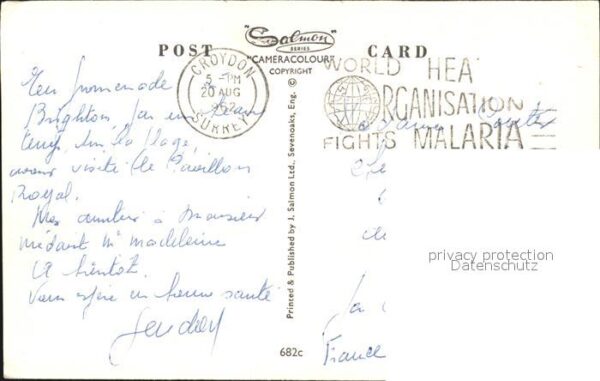 POST CARD
"Salmon"
SERIES
"CAMERACOLOUR"
COPYRIGHT ©
CROYDON
5 - PM
20 AUG
1962
SURREY
WORLD HEA
ORGANISATION
FIGHTS MALARIA
En promenade à
Brighton, par un beau
temps, sur la plage,
avons visité le Pavillon
Royal.
Mes amitiés à Monsieur
médaist Me Madeleine
A bientôt.
Vous espère en bonne santé
Printed & Published by J. Salmon Ltd., Sevenoaks, Eng.
682c
France
privacy protection
Datenschutz